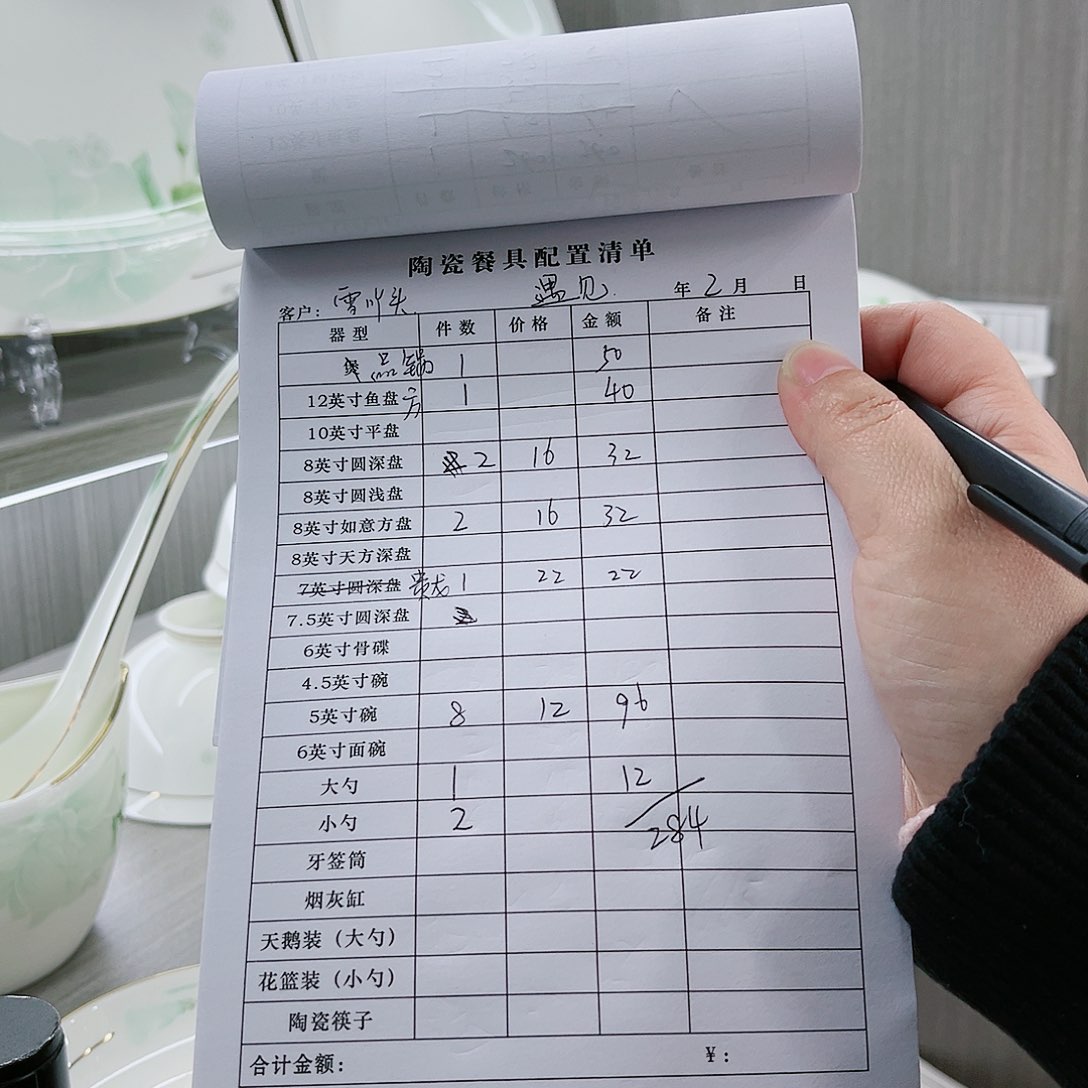 陶瓷餐具配置清单
客户: 遇见 年 2 月 日
器型 件数 价格 金额 备注
品锅 1 50
12英寸鱼盘 方 1 40
10英寸平盘
8英寸圆深盘 2 16 32
8英寸圆浅盘
8英寸如意方盘 2 16 32
8英寸天方深盘
7英寸圆深盘 1 22 22
7.5英寸圆深盘
6英寸骨碟
4.5英寸碗
5英寸碗 8 12 96
6英寸面碗
大勺 1 12
小勺 2 284
牙签筒
烟灰缸
天鹅装（大勺）
花篮装（小勺）
陶瓷筷子
合计金额: ¥: